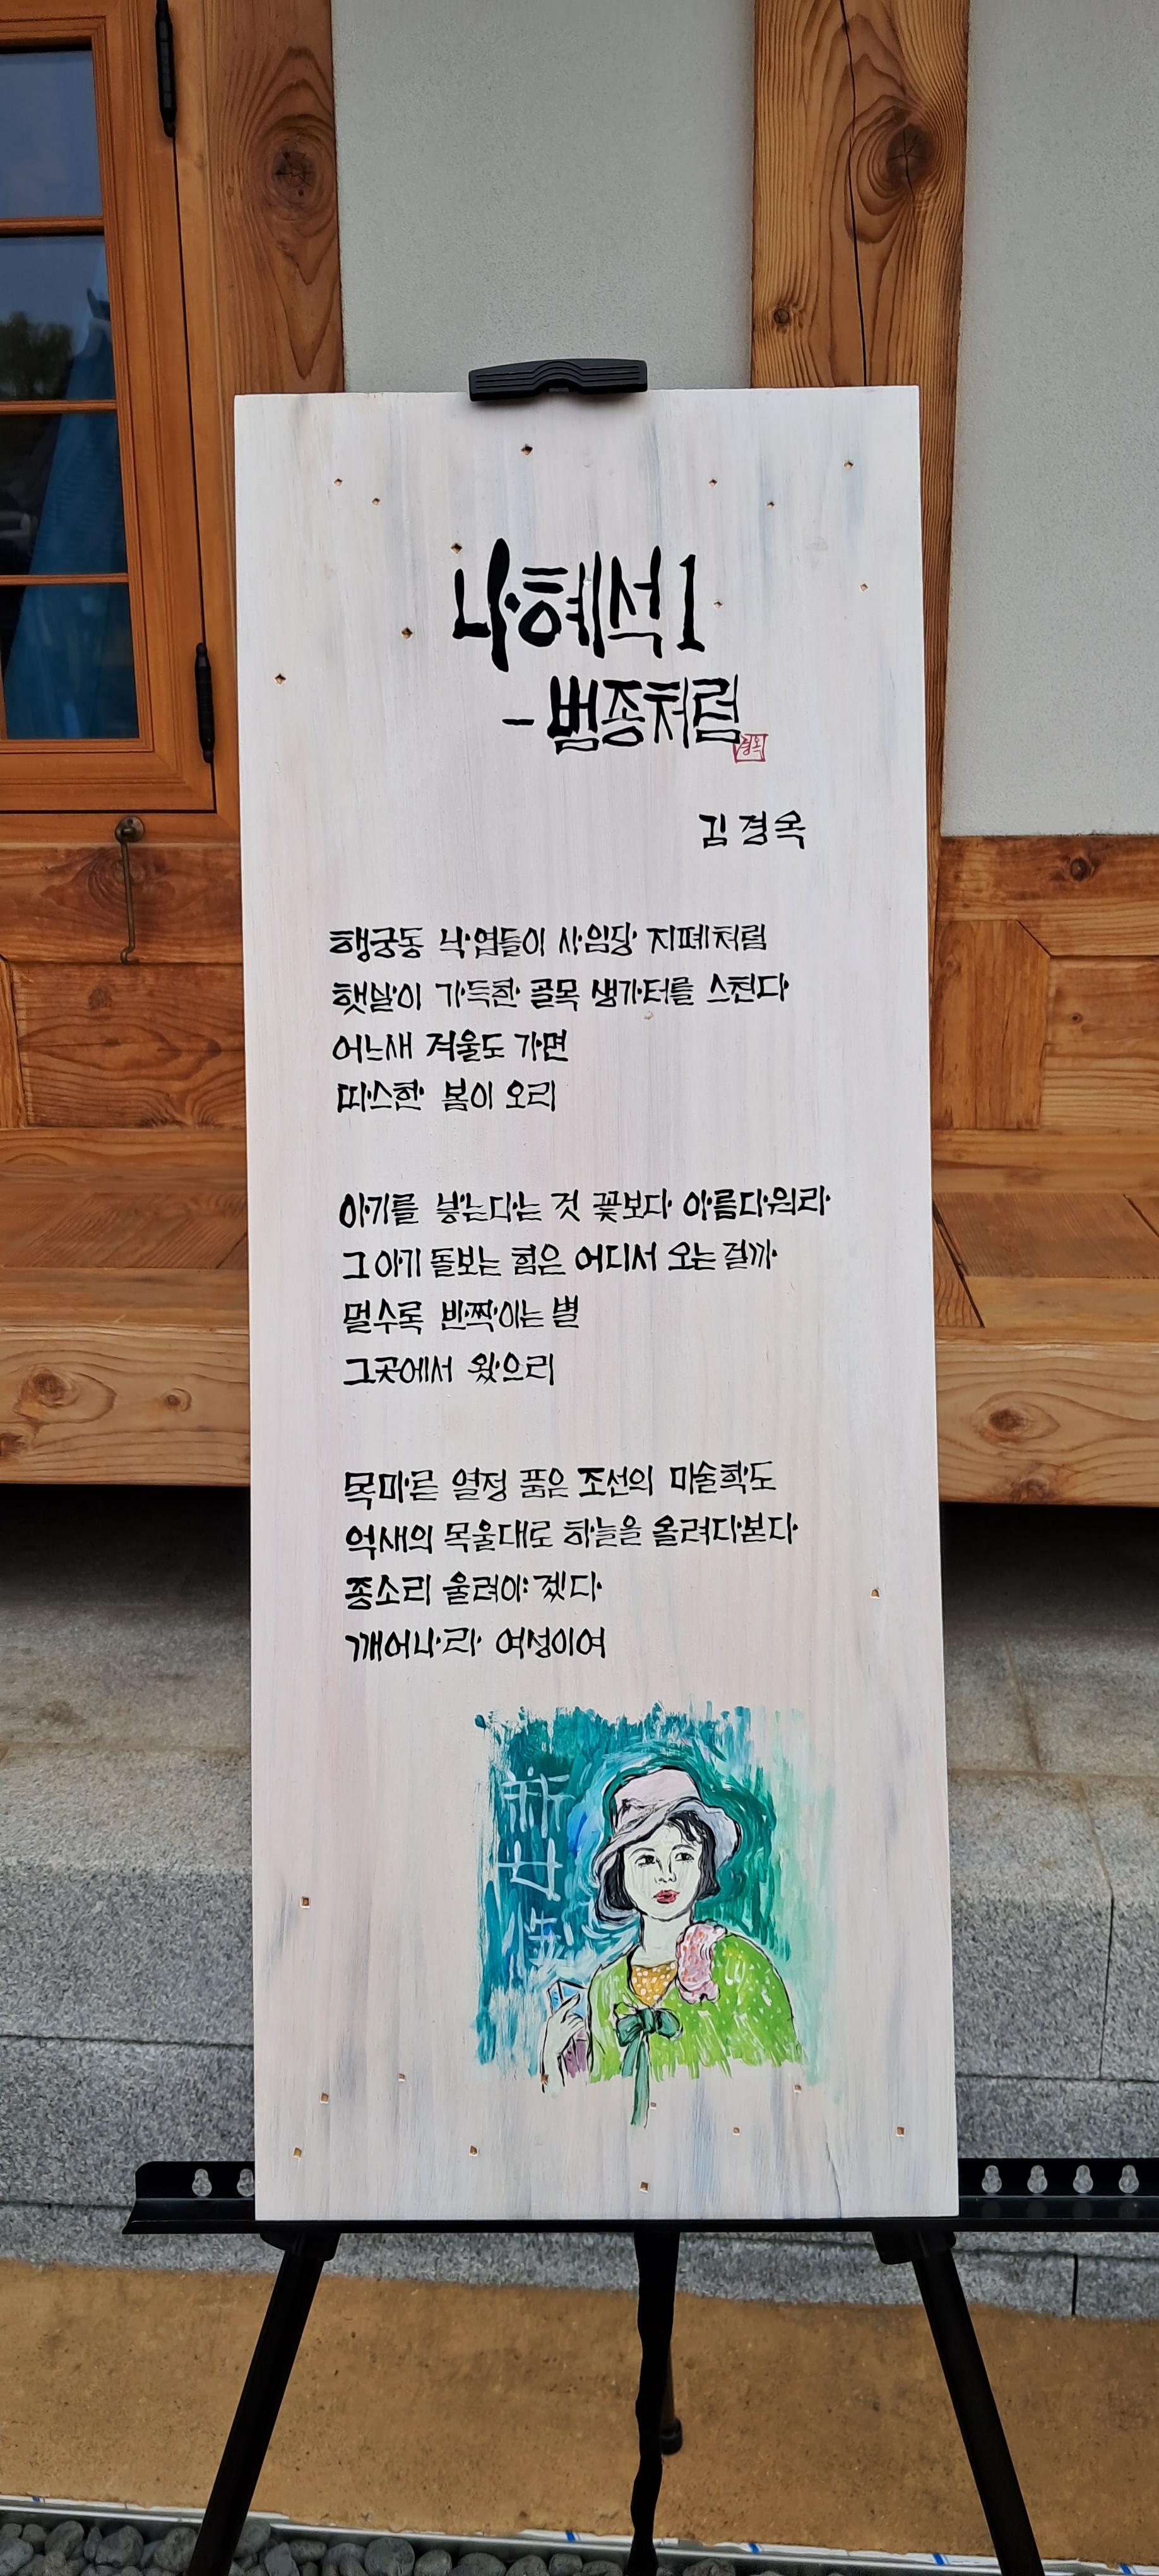 나혜석 1
- 범종처럼
경옥
김경옥
행궁동 낙엽들이 사임당 지폐처럼
햇살이 가득한 골목 생가터를 스친다
어느새 겨울도 가면
따스한 봄이 오리
아기를 낳는다는 것 꽃보다 아름다워라
그 아기 돌보는 힘은 어디서 오는걸까
멀수록 반짝이는 별
그곳에서 왔으리
목마른 열정 품은 조선의 미술학도
억새의 목울대로 하늘을 올려다본다
종소리 울려야겠다
깨어나라 여성이여
新
女